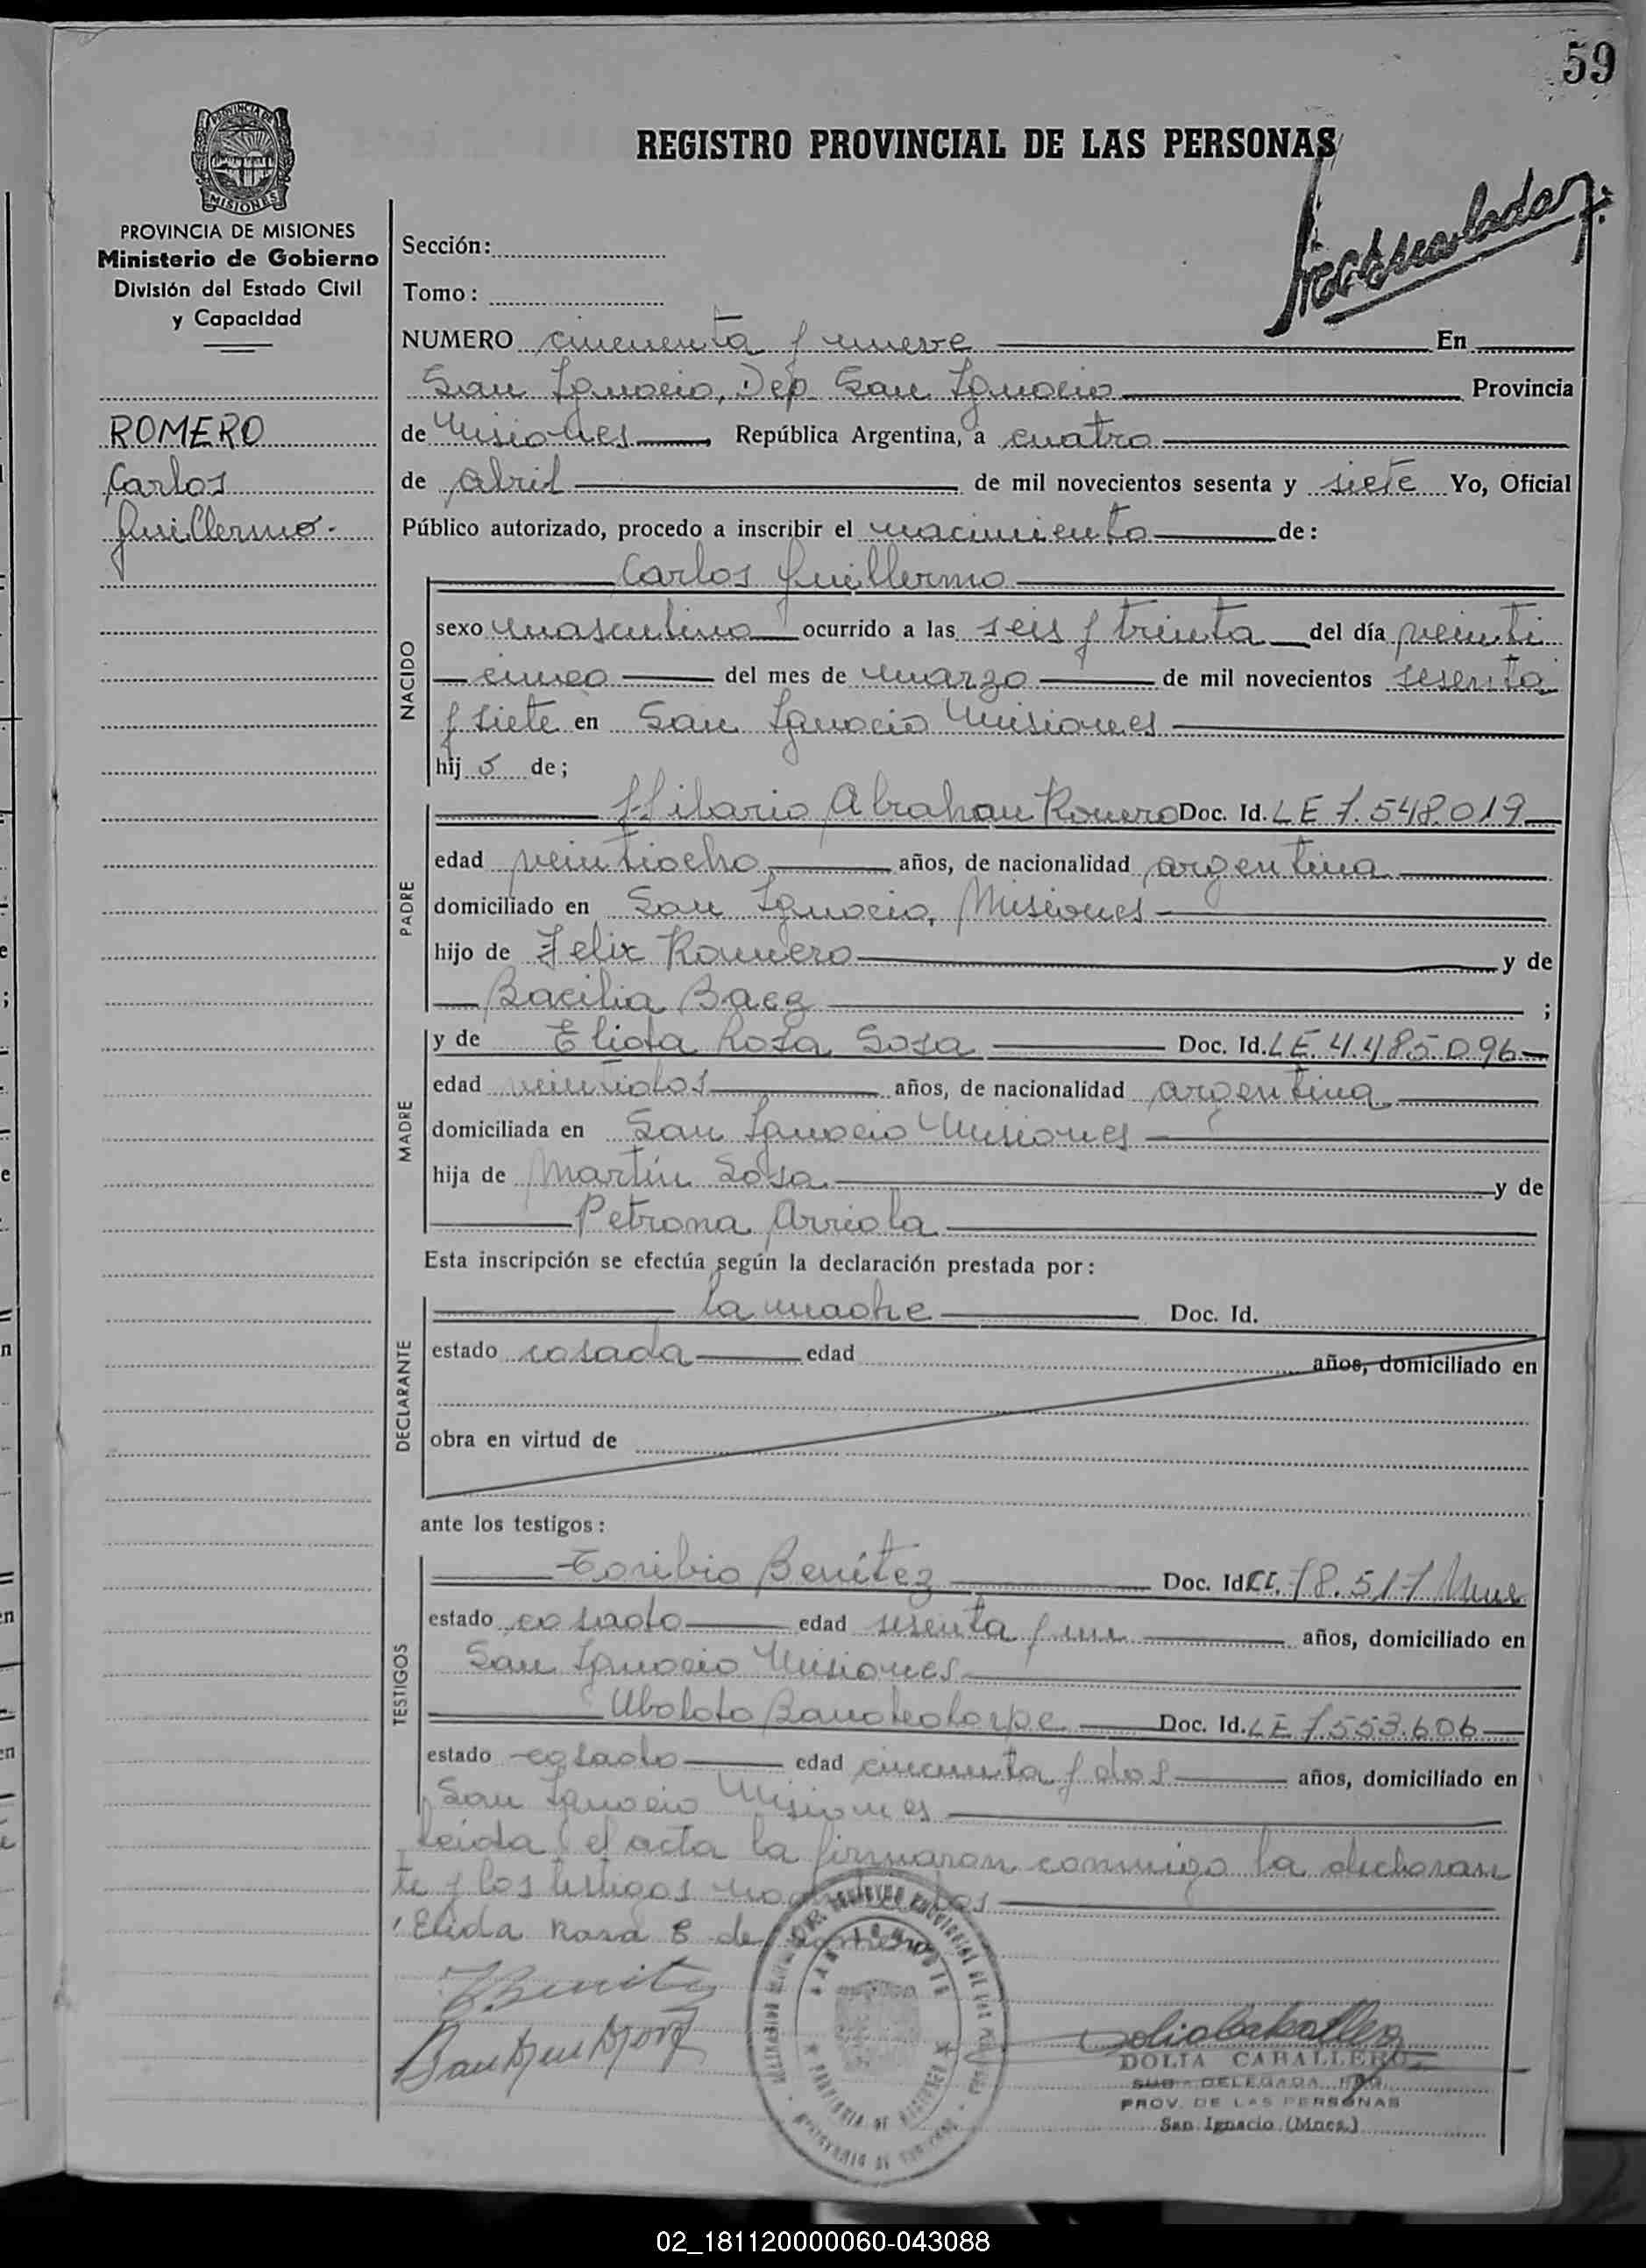 59
REGISTRO PROVINCIAL DE LAS PERSONAS
PROVINCIA DE MISIONES
Ministerio de Gobierno
División del Estado Civil
y Capacidad
ROMERO
Carlos
Guillermo.-
Sección:
Tomo:
NUMERO cincuenta y nueve En
San Ignacio, Dep San Ignacio Provincia
de Misiones, República Argentina, a cuatro
de abril de mil novecientos sesenta y siete Yo, Oficial
Público autorizado, procedo a inscribir el nacimiento de:
NACIDO
Carlos Guillermo
sexo masculino ocurrido a las seis y treinta del día veinti
cinco del mes de marzo de mil novecientos sesenta
y siete en San Ignacio Misiones
hijo de;
PADRE
Hilario Abrahan Romero Doc. Id. LE 7.548.019
edad veintiocho años, de nacionalidad argentina
domiciliado en San Ignacio, Misiones
hijo de Felix Romero y de
Bacilia Baez ;
MADRE
y de Elida Rosa Sosa Doc. Id. LE. 4.485.096
edad veintidos años, de nacionalidad argentina
domiciliada en San Ignacio Misiones
hija de Martín Sosa y de
Petrona Arriola
Esta inscripción se efectúa según la declaración prestada por:
DECLARANTE
la madre Doc. Id.
estado casada edad años, domiciliado en
obra en virtud de
ante los testigos:
TESTIGOS
Toribio Benítez Doc. Id CI. 78.517 Mnes
estado casado edad sesenta y un años, domiciliado en
San Ignacio Misiones
Ubaldo Doc. Id. LE 7.553.606
estado casado edad cincuenta y dos años, domiciliado en
San Ignacio Misiones
leida el acta la firmaron conmigo la declaran
te y los testigos nombrados
Elida Rosa S de Romero
T. Benitez
DOLIA CABALLERO
SUB-DELEGADA REG.
PROV. DE LAS PERSONAS
San Ignacio (Mnes.)
02_181120000060-043088